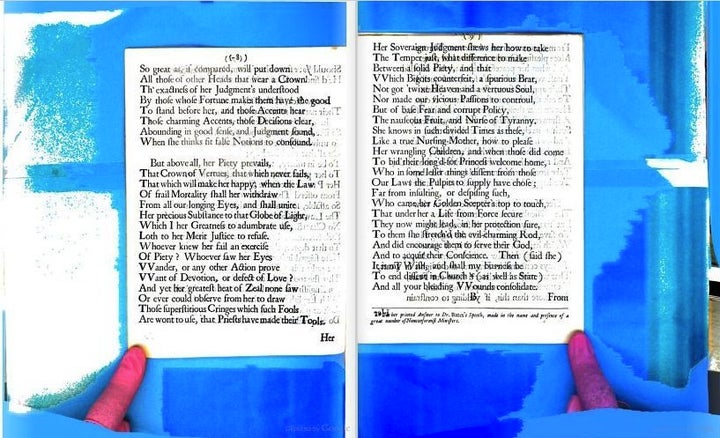 (8)
So great as, if compared, will put down
All those of other Heads that wear a Crown!
Th' exactness of her Judgment's understood
By those whose Fortune makes them have the good
To stand before her, and those Accents hear
Those charming Accents, those Decisions clear,
Abounding in good sense, and Judgment sound,
When she thinks fit false Notions to confound.
But above all, her Piety prevails,
That Crown of Vertues, that which never fails,
That which will make her happy, when the Law
Of frail Mortality shall her withdraw
From all our longing Eyes, and shall unite
Her precious Substance to that Globe of Light,
Which I her Greatness to adumbrate use,
Loth to her Merit Justice to refuse.
Whoever knew her fail an exercise
Of Piety? Whoever saw her Eyes
VVander, or any other Action prove
VVant of Devotion, or defect of Love?
And yet her greatest heat of Zeal none saw
Or ever could observe from her to draw
Those superstitious Cringes which such Fools
Are wont to use, that Priests have made their Tools.
Her
Her Soveraign Judgment shews her how to take
The Temper just, what difference to make
Between a solid Piety, and that
VVhich Bigots counterfeit, a spurious Brat,
Not got 'twixt Heaven and a vertuous Soul,
Nor made our vicious Passions to controul,
But of base Fear and corrupt Policy,
The nauseous Fruit, and Nurse of Tyranny,
She knows in such divided Times as these,
Like a true Nursing-Mother, how to please
Her wrangling Children, and when those did come
To bid their long'd-for Princess welcome home,
Who in some lesser things dissent from those
Our Laws the Pulpits to supply have chose;
Far from insulting, or despising such,
Who came her Golden Scepter's top to touch,
That under her a Life from Force secure
They now might lead, in her protection sure,
To them she stretch'd the evil-charming Rod,
And did encourage them to serve their God,
And to acquit their Conscience. Then (said she)
It is my Wish, and shall my business be
To end in Church (as well as State)
And all your bleeding VVounds consolate.
From
her printed Answer to Dr. Bates's Speech, made in the name and presence of a
great number of Nonconformist Ministers.